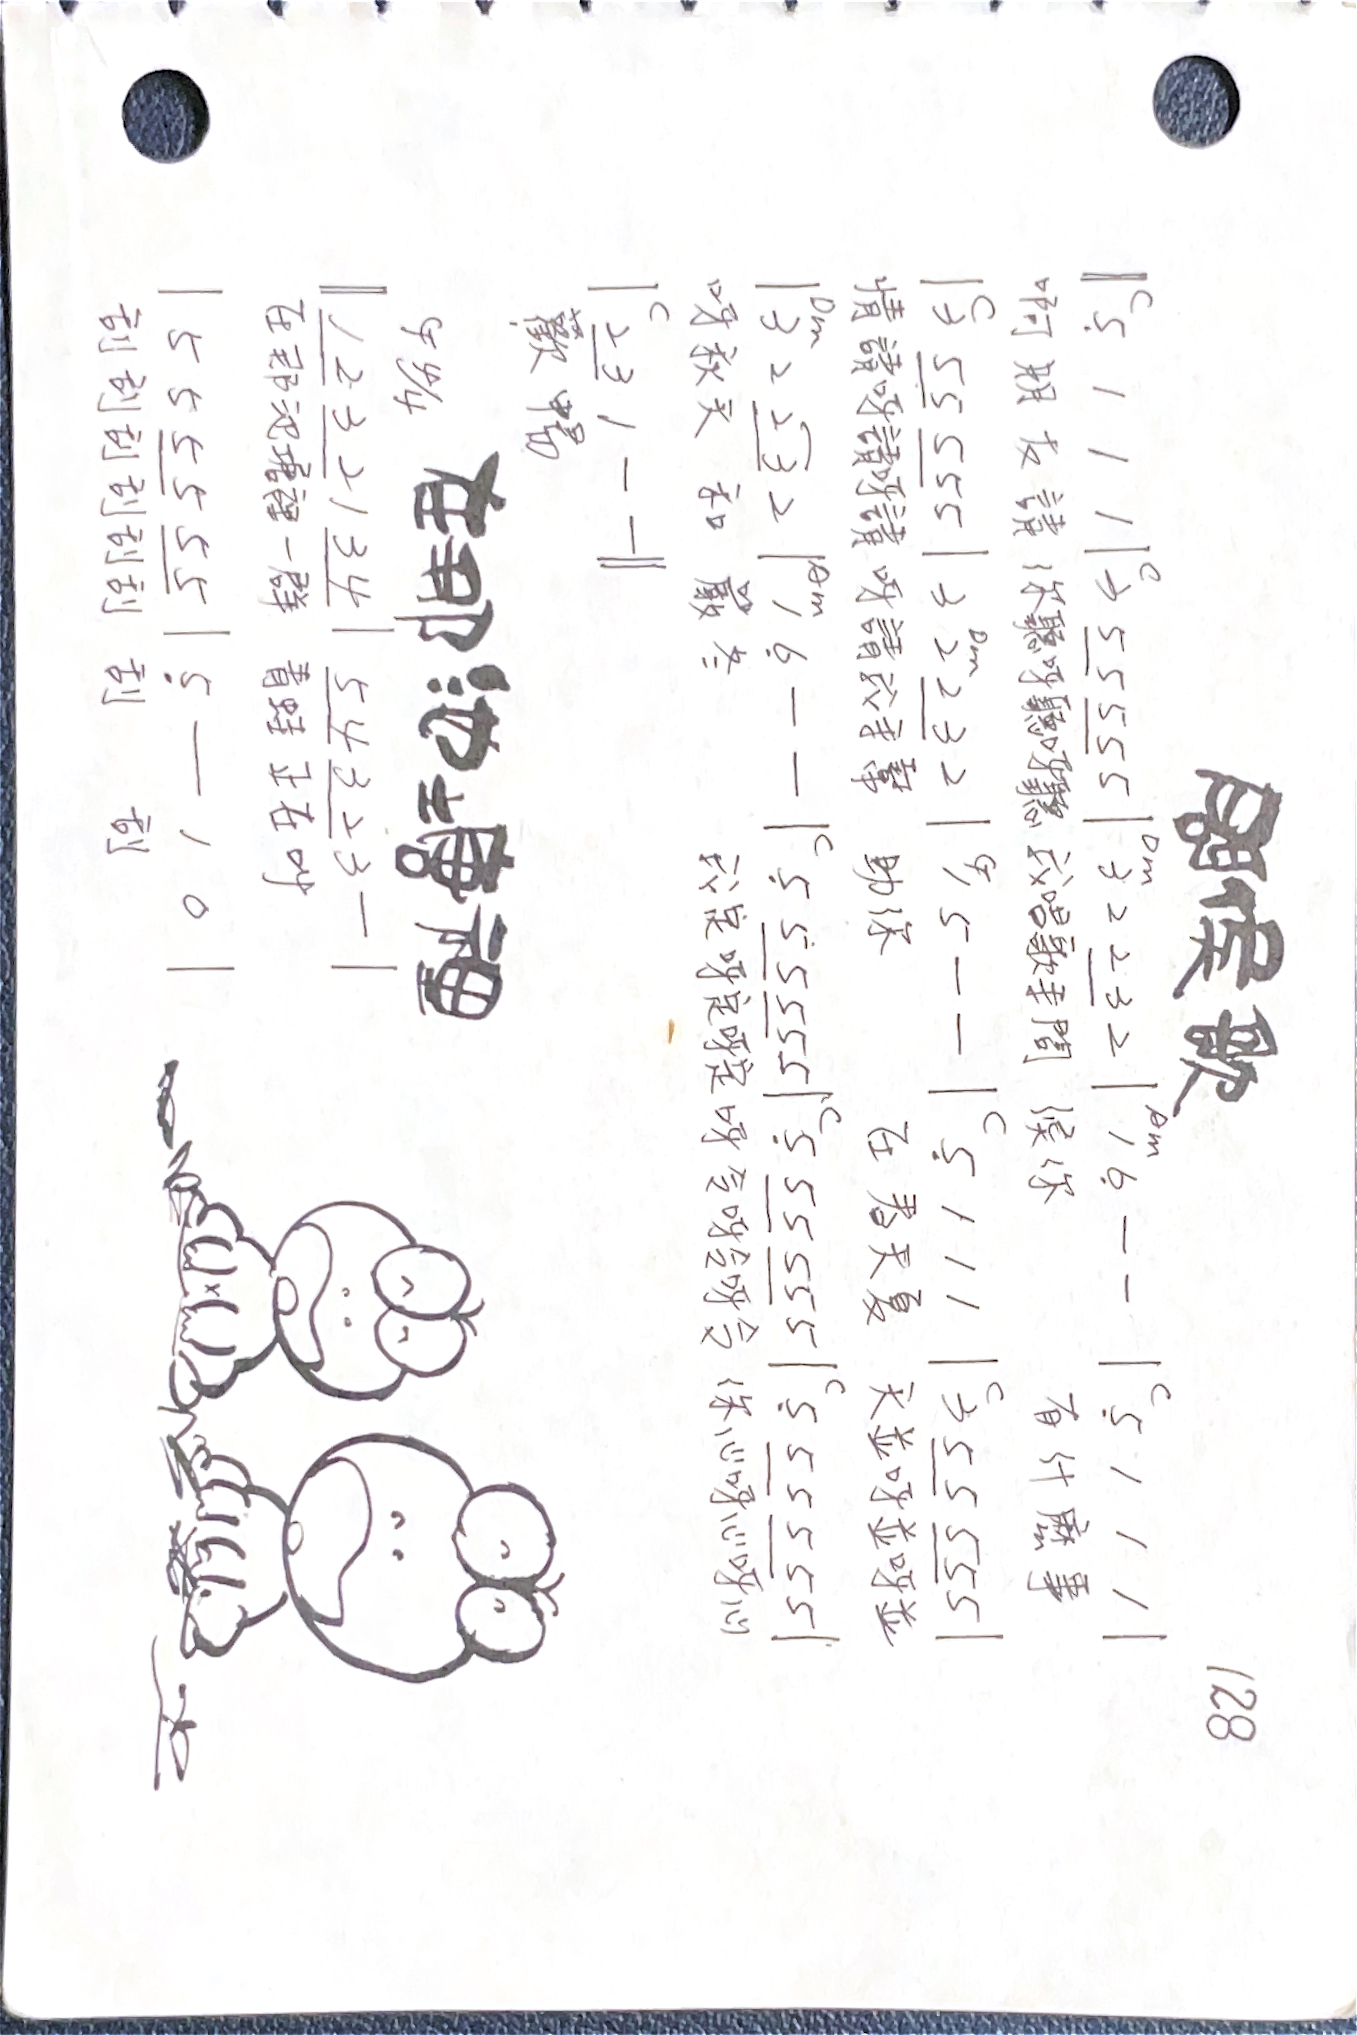 問候歌
128
C C Dm Am C
‖ 5̣ 1 1 1 | 3 5 5 5 5 5 | 3 2 2 3 2 | 1 6̣ — — | 5̣ 1 1 1 |
啊朋友請 你聽呀聽呀聽 我唱歌來問 候你 有什麼事
C Dm G C C
| 3 5 5 5 5 5 | 3 2 2 3 2 | 1 5 — — | 5̣ 1 1 1 | 3 5 5 5 5 5 |
情請呀請呀請 呀請我來幫 助你 在春天夏 天並呀並呀並
Dm Am C C C
| 3 2 2 3 2 | 1 6̣ — — | 5̣ 5 5 5 5 5 | 5̣ 5 5 5 5 5 | 5̣ 5 5 5 5 5 |
呀秋天 和 嚴冬 我定呀定呀定 呀令呀令呀令 你心呀心呀心
C
| 2 3 1 — — ‖
歡暢
在那池塘裡
G 4/4
‖ 1 2 3 2 1 3 4 | 5 4 3 2 3 — |
在那池塘裡一群 青蛙正在叫
| 5 5 5 5 5 5 | 5̣ — 1 0 |
刮刮刮刮刮刮 刮 刮